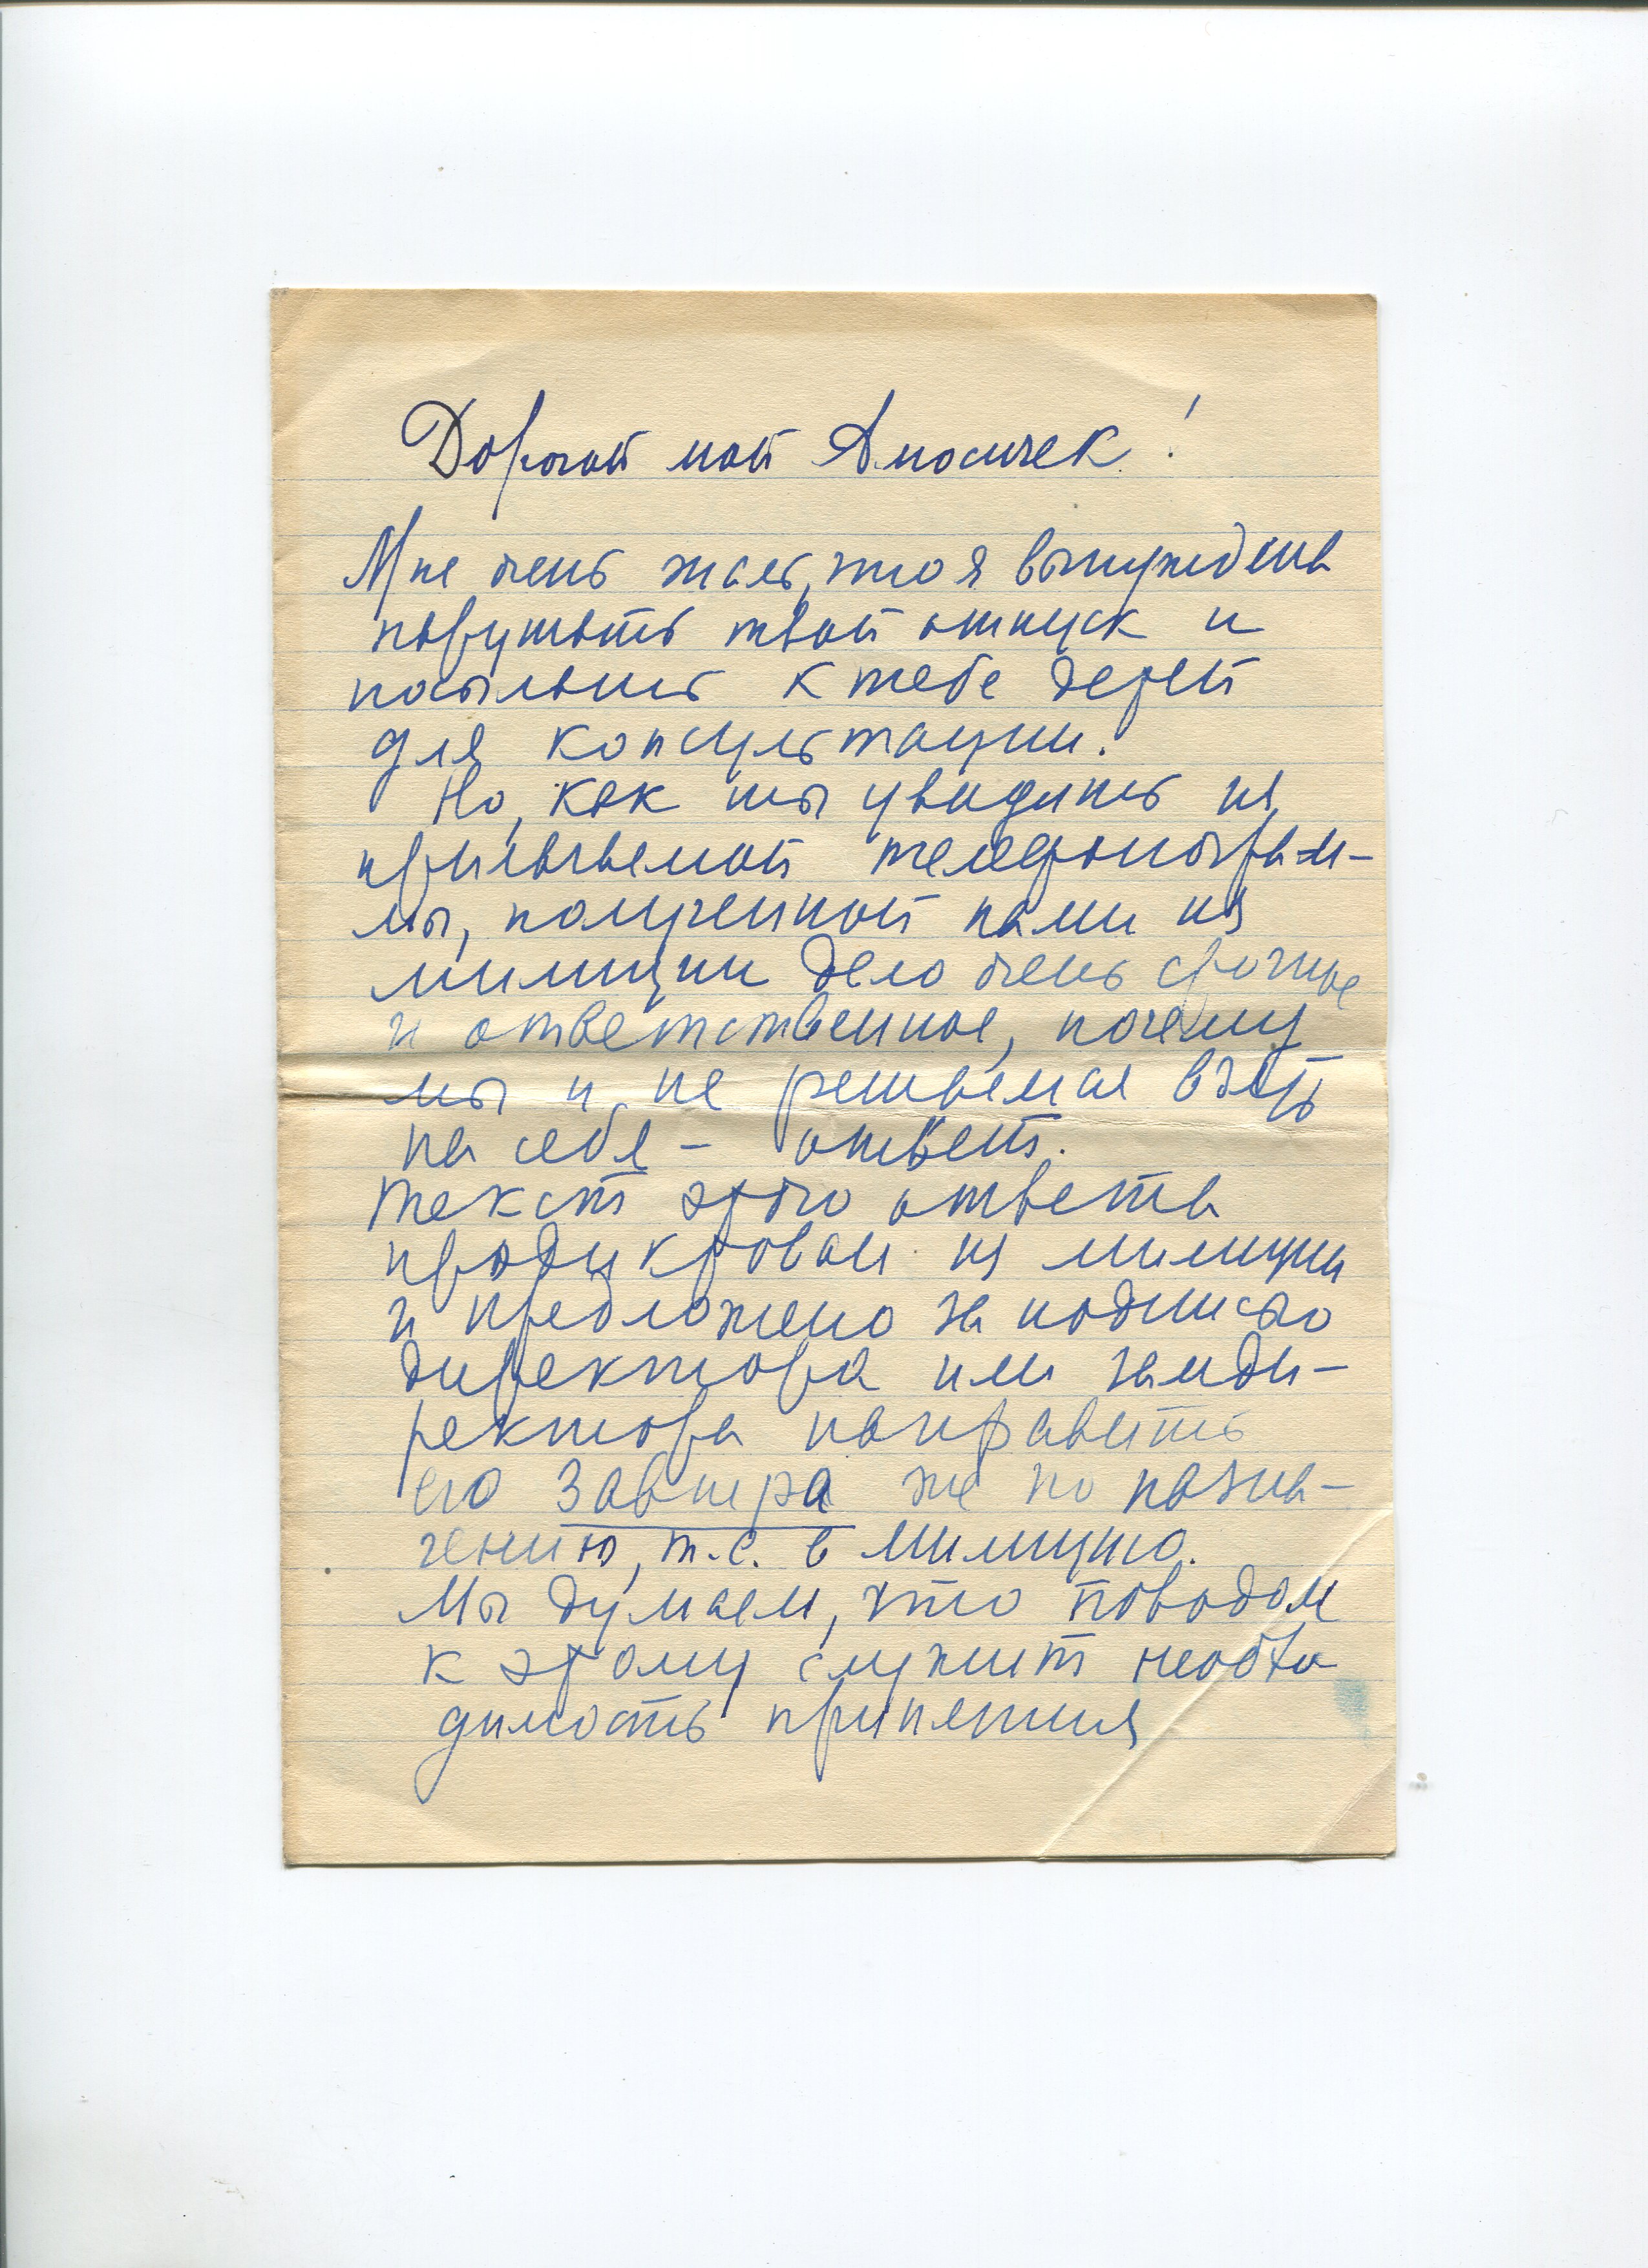 Дорогой мой Амосичек!
Мне очень жаль, что я вынуждена
нарушать твой отпуск и
посылать к тебе детей
для консультации.
Но, как ты увидишь из
прилагаемой телефонограм-
мы, полученной нами из
милиции дело очень срочное
и ответственное, почему
мы и не решаемся взять
на себя – ответ.
Текст этого ответа
продиктован из милиции
и предложено за подписью
директора или замди-
ректора направить
его завтра же по назна-
чению, т.е. в милицию.
Мы думаем, что поводом
к этому служит необхо
димость принятия